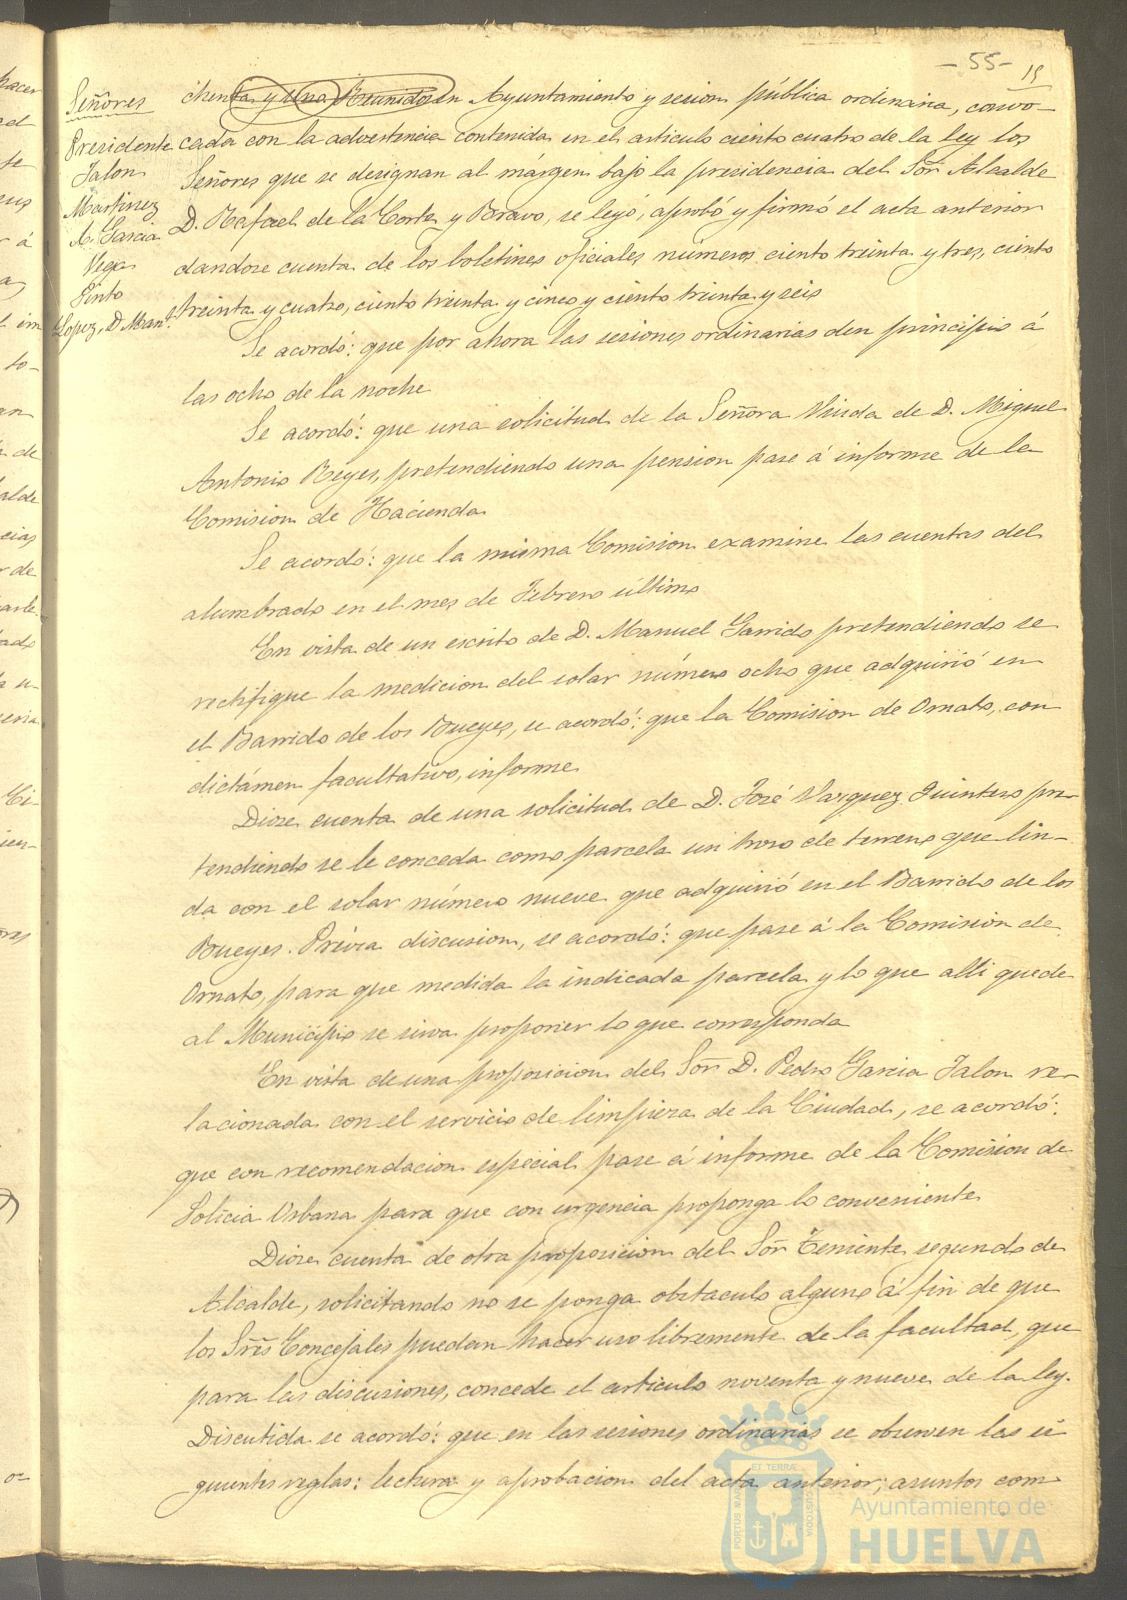 -55-
15
Señores
Presidente
Jalon
Martinez
A. Garcia
Vega
Pinto
Lopez, D. Man.
chenta y una Reunidos en Ayuntamiento y sesion pública ordinaria, convo-
cada con la advertencia contenida en el articulo ciento cuatro de la ley los
Señores que se designan al márgen bajo la presidencia del Sor. Alcalde
D. Rafael de la Corte y Bravo, se leyó, aprobó y firmó el acta anterior
dandose cuenta de los boletines oficiales números ciento treinta y tres, ciento
treinta y cuatro, ciento treinta y cinco y ciento treinta y seis
Se acordó: que por ahora las sesiones ordinarias den principio á
las ocho de la noche
Se acordó: que una solicitud de la Señora Viuda de D. Miguel
Antonio Reyes, pretendiendo una pension pase á informe de la
Comision de Hacienda
Se acordó: que la misma Comision examine las cuentas del
alumbrado en el mes de Febrero último
En vista de un escrito de D. Manuel Garrido pretendiendo se
rectifique la medicion del solar número ocho que adquirió en
el Barrido de los Bueyes, se acordó: que la Comision de Ornato, con
dictámen facultativo, informe
Diose cuenta de una solicitud de D. José Vazquez Quintero pre-
tendiendo se le conceda como parcela un trozo de terreno que lin-
da con el solar número nueve que adquirió en el Barrido de los
Bueyes. Prévia discusion, se acordó: que pase á la Comision de
Ornato, para que medida la indicada parcela y lo que alli quede
al Municipio se sirva proponer lo que corresponda
En vista de una proposicion del Sor. D. Pedro Garcia Jalon re-
lacionada con el servicio de limpieza de la Ciudad, se acordó:
que con recomendacion especial pase á informe de la Comision de
Policia Urbana para que con urgencia proponga lo conveniente
Diose cuenta de otra proposicion del Sor. Teniente segundo de
Alcalde, solicitando no se ponga obstaculo alguno á fin de que
los Sres. Concejales puedan hacer uso libremente de la facultad, que
para las discusiones, concede el articulo noventa y nueve de la ley.
Discutida se acordó: que en las sesiones ordinarias se observen las si-
guientes reglas: lectura y aprobacion del acta anterior; asuntos com
PORTUS MARIS
ET TERRÆ
CUSTODIA
Ayuntamiento de
HUELVA